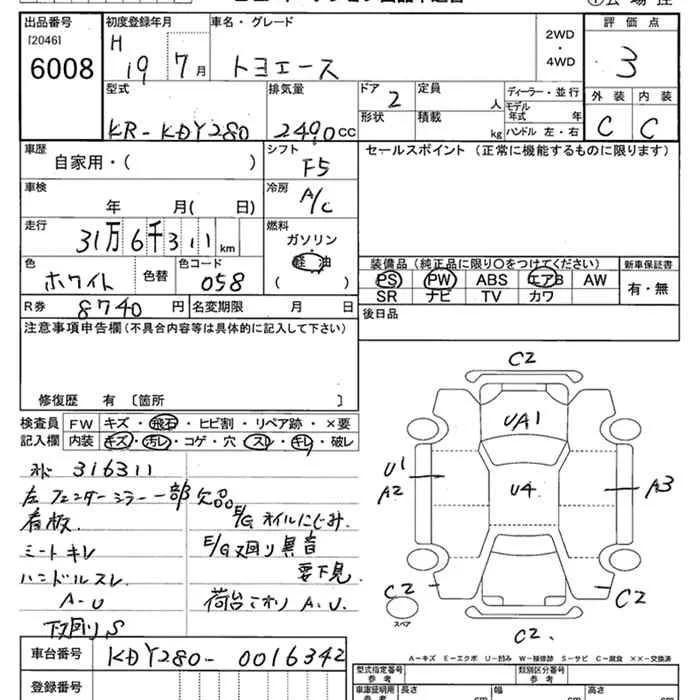 出品番号 初度登録年月 車名・グレード 2WD・4WD 評価点
[2046] 6008 H 19 7月 トヨエース 3
型式 排気量 ドア 2 定員 人 ディーラー・並行 外装 内装
KR-KDY280 2490cc 形状 積載 kg モデル年式 年 ハンドル 左・右 C C
車歴 自家用・( ) シフト F5 セールスポイント (正常に機能するものに限ります)
車検 年 月( 日) 冷房 A/C
走行 31万6千311km 燃料 ガソリン 軽油 ( )
色 ホワイト 色替 色コード 058
装備品 (純正品に限り〇をつけてください) 新車保証書
PS PW ABS エアB AW 有・無
SR ナビ TV カワ
R券 8740円 名変期限 月 日 後日品
注意事項申告欄 (不具合内容等は具体的に記入して下さい)
修復歴 有 〔箇所 〕
検査員 FW キズ・飛石・ヒビ割・リペア跡・×要
記入欄 内装 キズ・汚レ・コゲ・穴・スレ・キレ・破レ
316311
左フェンダーミラー一部欠品
看板 E/Gオイルにじみ
シートキレ E/G廻り異音
ハンドルスレ 要下見
A-U 荷台コボリ A.U.
下廻りS
C2
UA1
U1
A2
U4
A3
C2 C2
スペア
C2
A-キズ E-エクボ U-凹み W-補修跡 S-サビ C-腐食 ××-交換済
車台番号 KDY280-0016342
登録番号
型式指定番号 参考 類別区分番号 参考
車庫証明用 参考 長さ cm 幅 cm 高さ cm